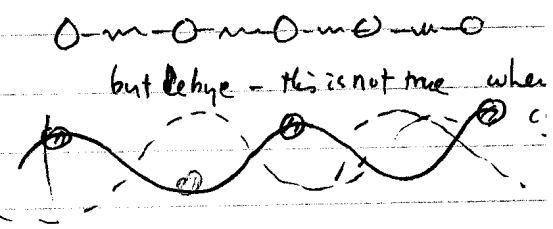 but Debye - this is not true when